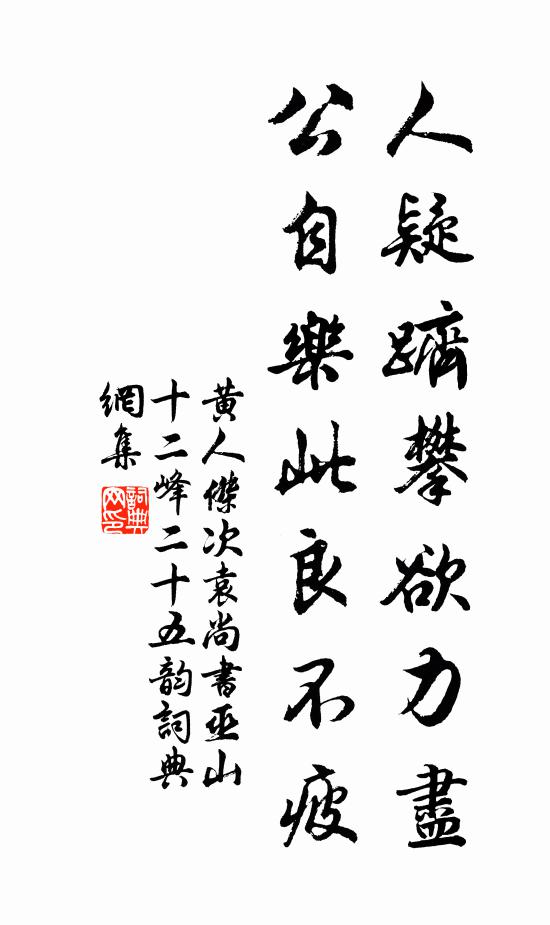 人疑躋攀欲力盡
公自樂此良不疲
黃人傑次袁尚書巫山
十二峰二十五韵詞典
網集
詞典網印